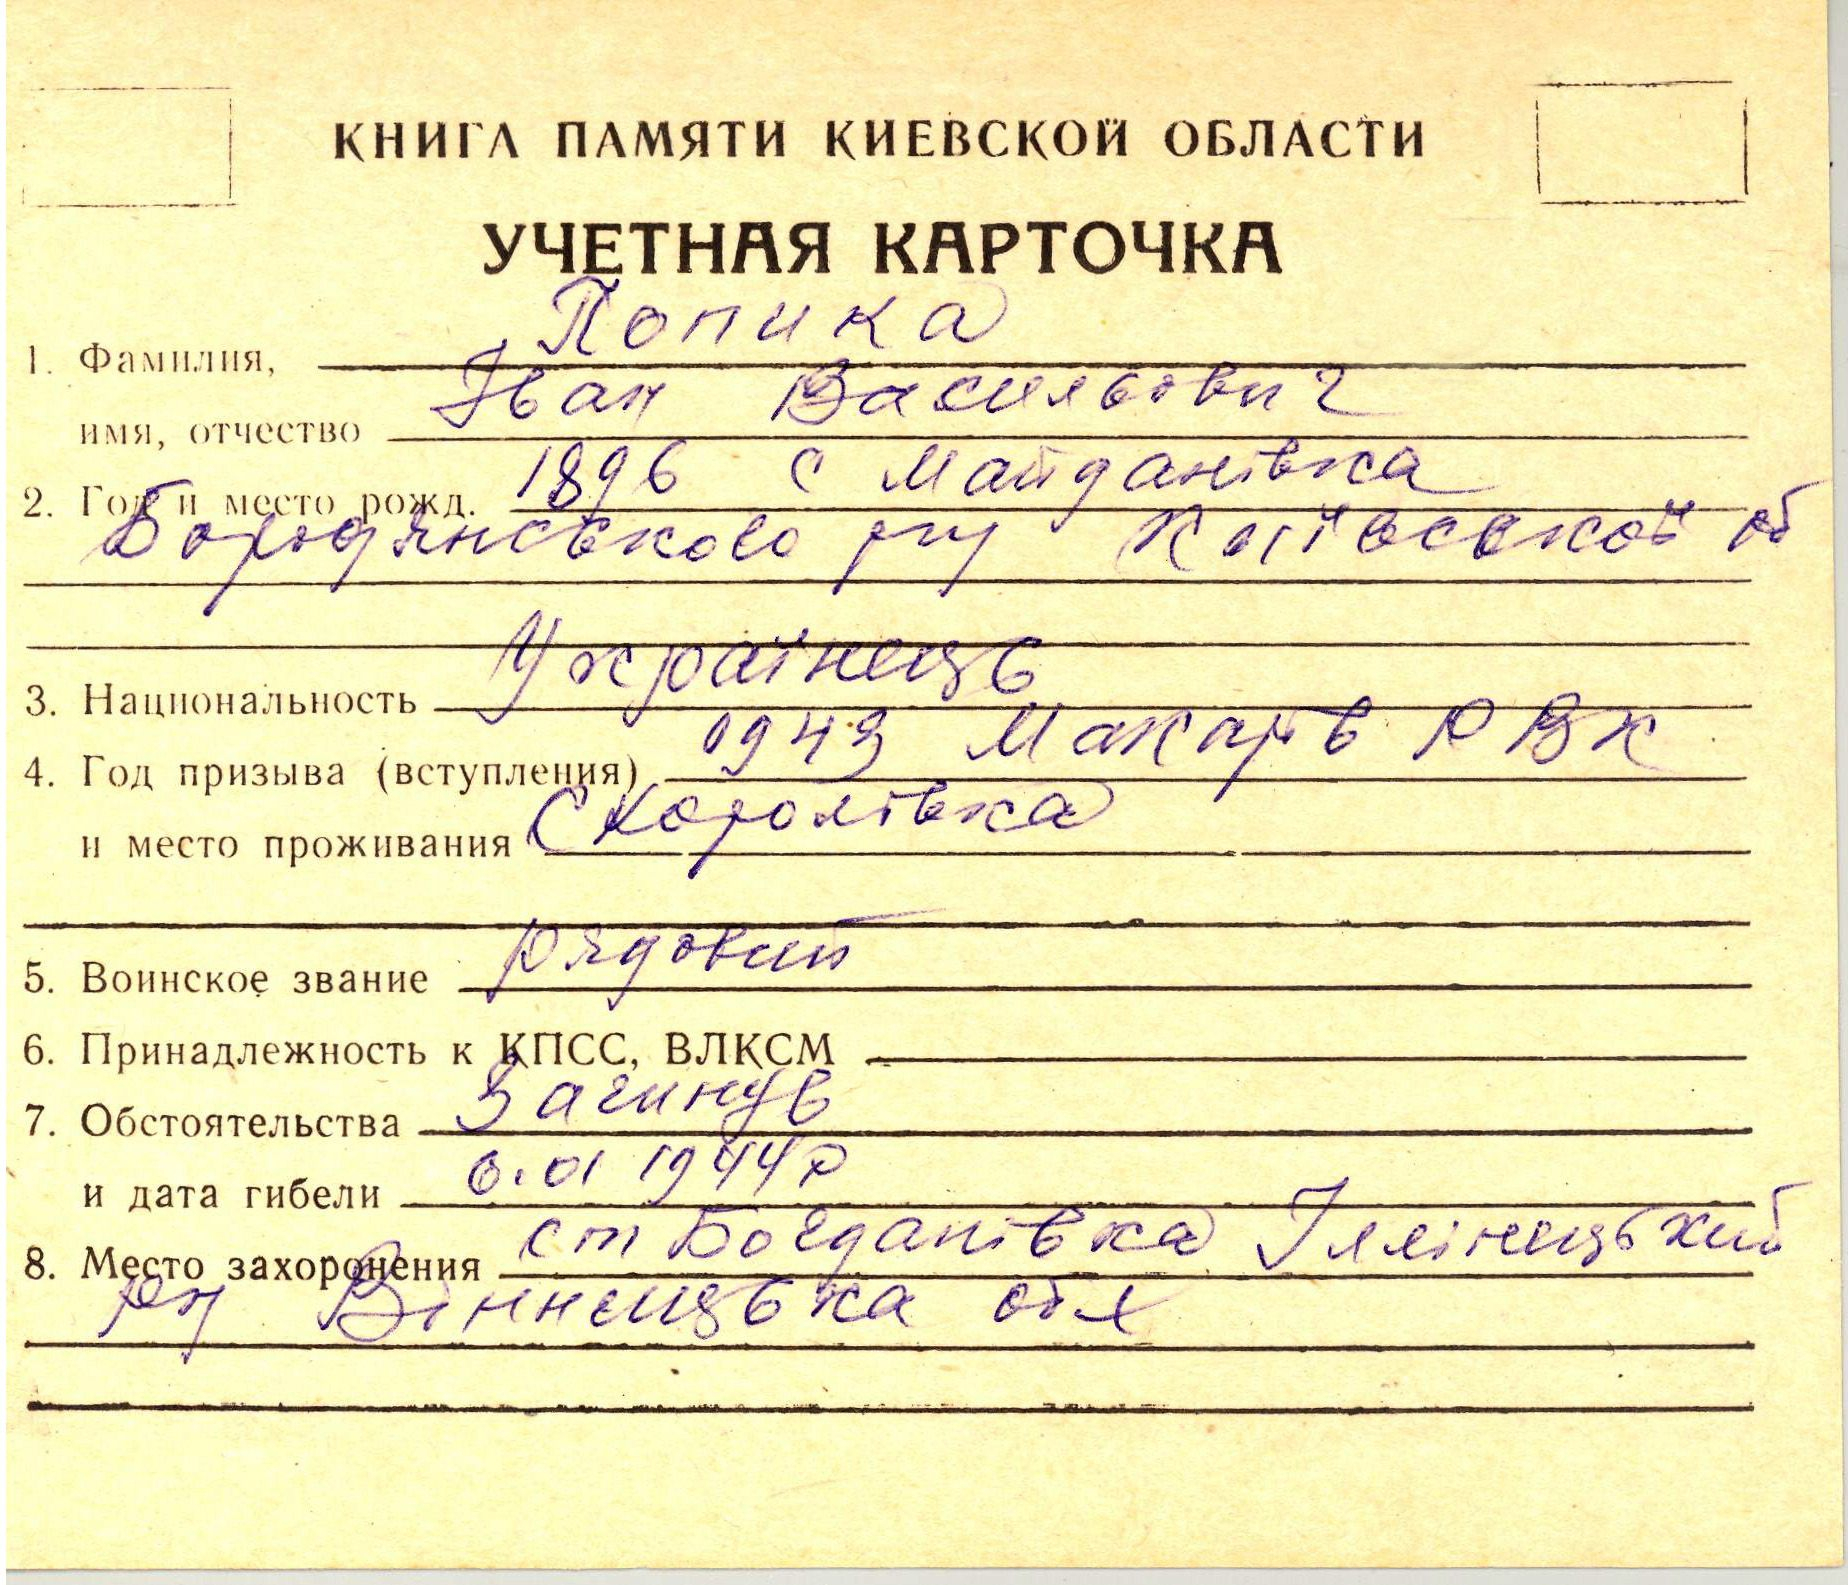 КНИГА ПАМЯТИ КИЕВСКОЙ ОБЛАСТИ
УЧЕТНАЯ КАРТОЧКА
1. Фамилия, Попика
имя, отчество Іван Васильович
2. Год и место рожд. 1896 с Майданівка
Бородянського рну Киівськой об
3. Национальность Українець
4. Год призыва (вступления) 1943 Макарів РВК
и место проживания с Королівка
5. Воинское звание рядовий
6. Принадлежность к КПСС, ВЛКСМ
7. Обстоятельства Загинув
и дата гибели 6.01 1944р
8. Место захоронения ст Богданівка Іллінецький
рн Вінницька обл